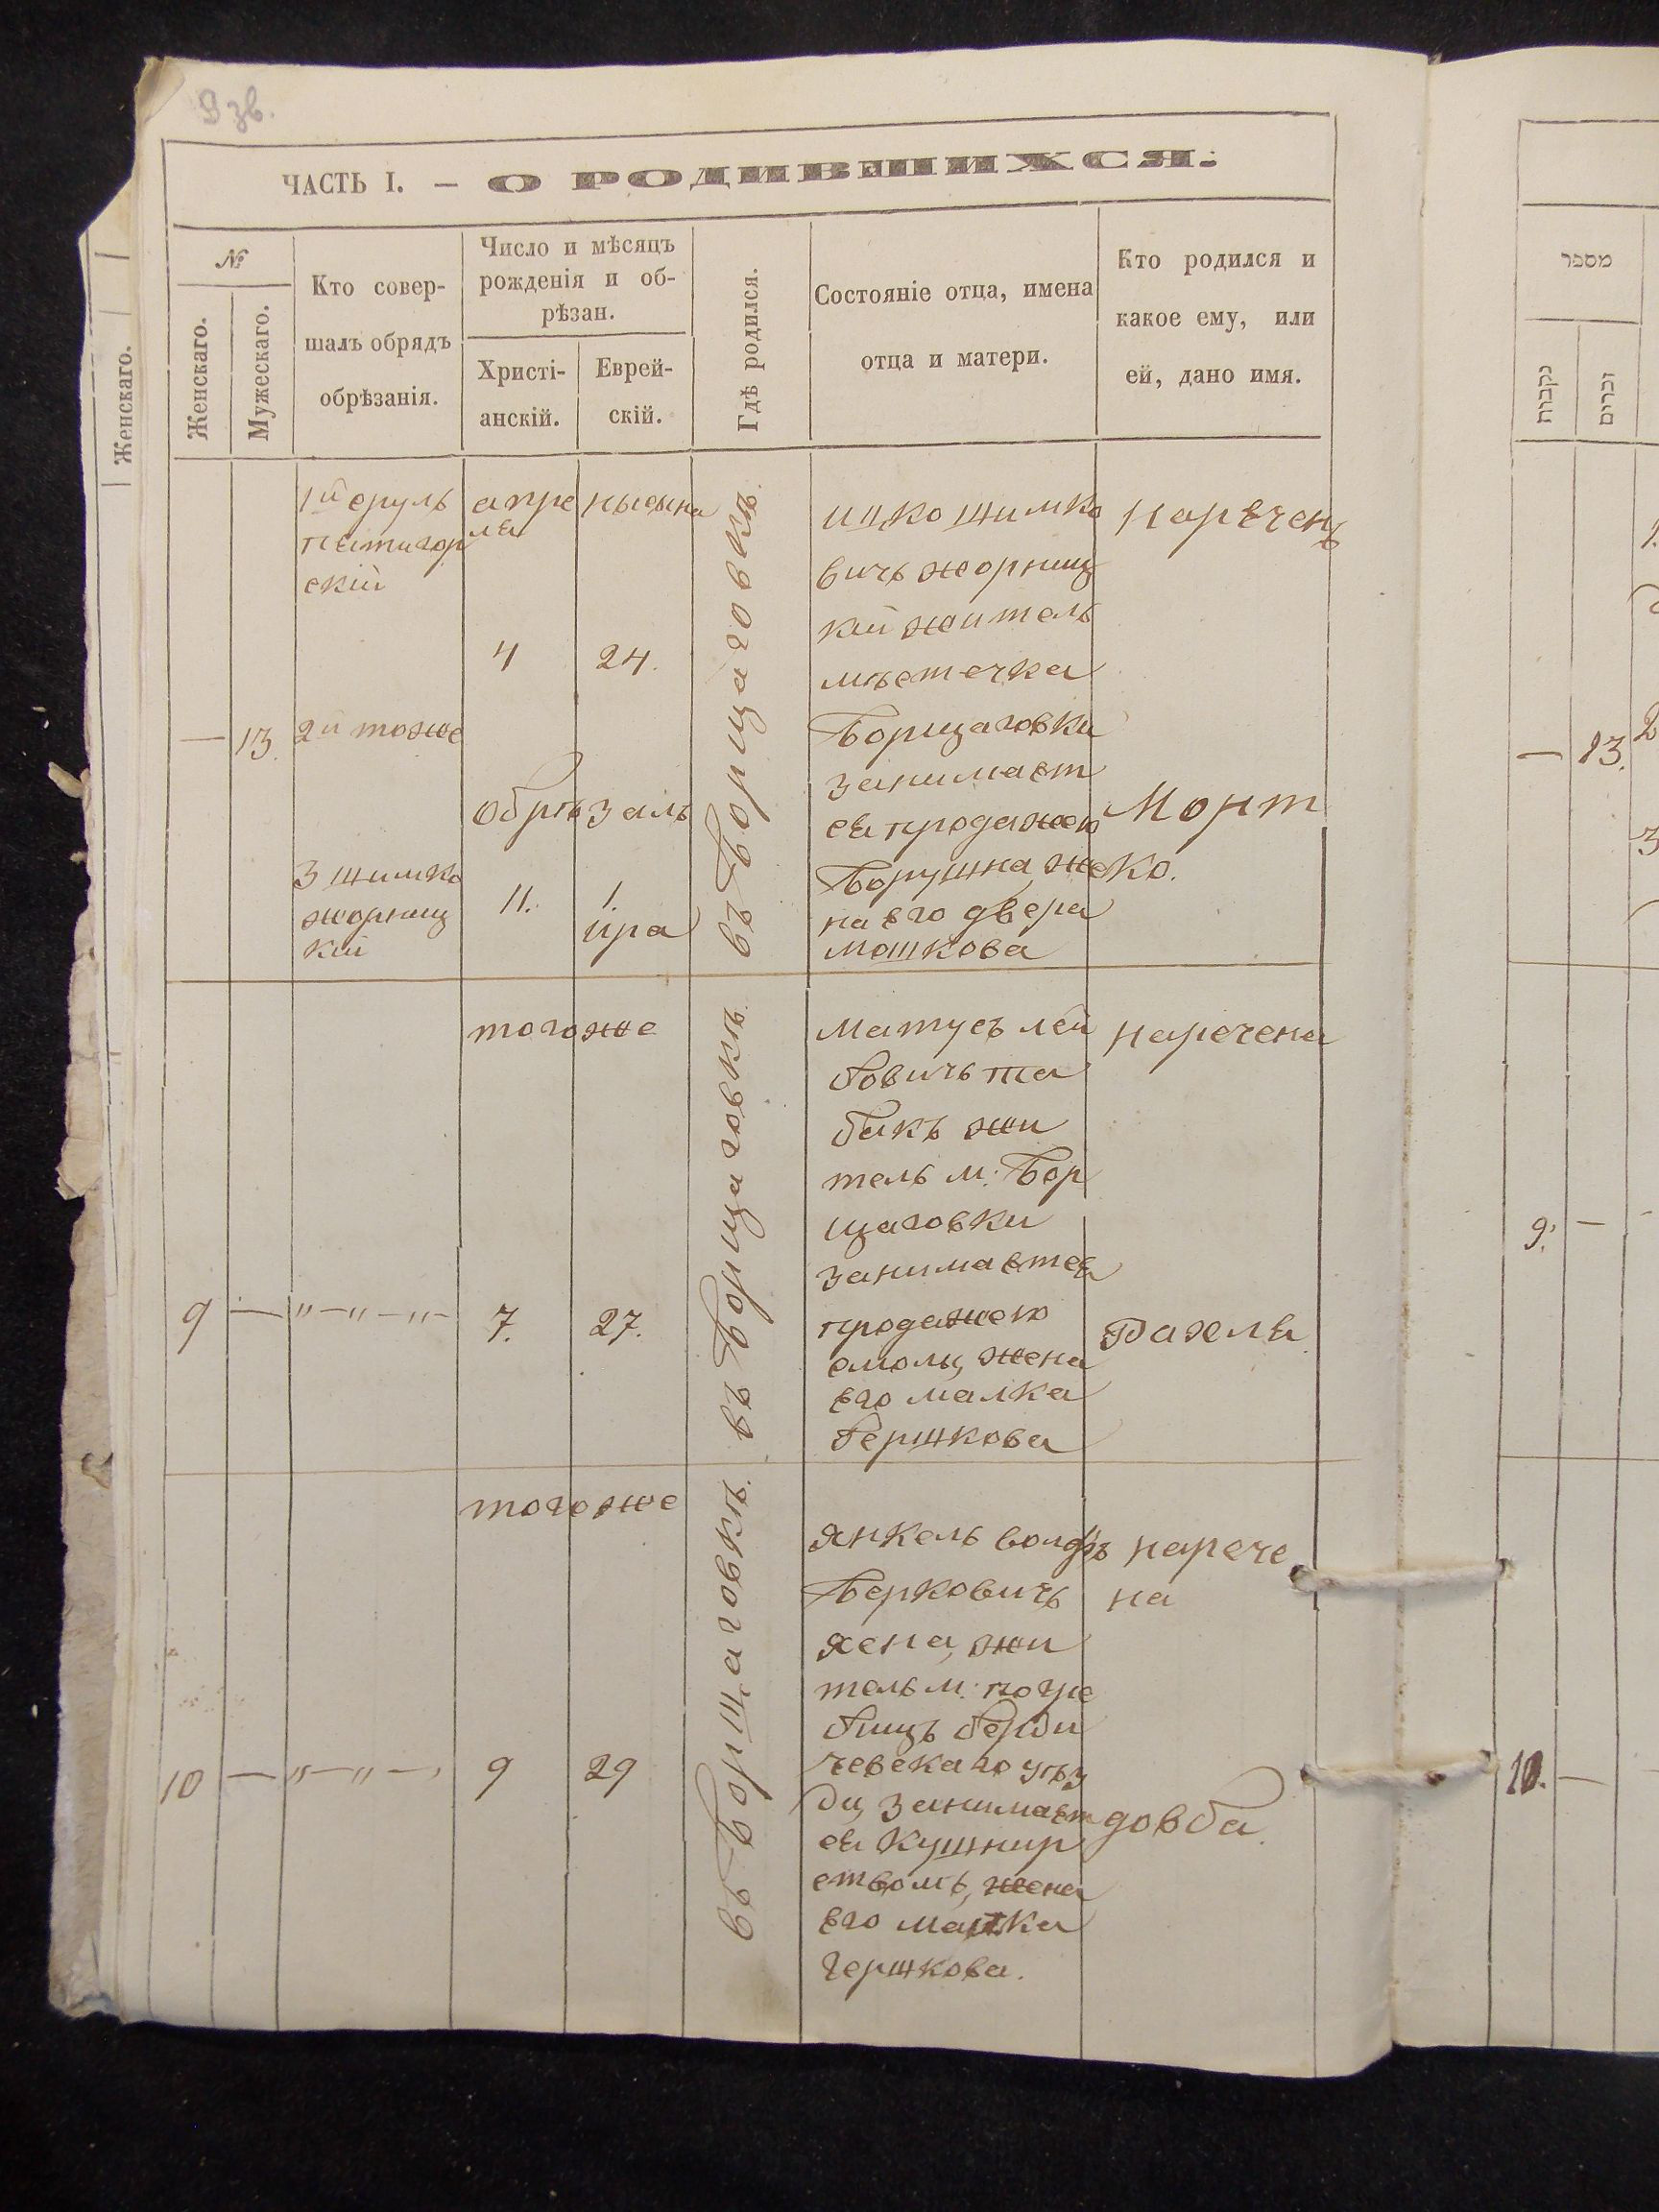 9 зв.
ЧАСТЬ I. — О РОДИВШИХСЯ.
№
Женскаго.
Мужескаго.
Кто совер-
шалъ обрядъ
обрѣзанія.
Число и мѣсяцъ
рожденія и об-
рѣзан.
Христі-
анскій.
Еврей-
скій.
Гдѣ родился.
Состояніе отца, имена
отца и матери.
Кто родился и
какое ему, или
ей, дано имя.
— 13.
1й сруль
пятигор
скій
2й тоже
3 шимко
жорниц
кій
апре
ля
4
нысына
24.
обрѣзалъ
11.
1.
ира
въ Борщаговкѣ.
ицко шимко
вичъ жорниц
кій житель
мѣстечка
Борщаговки
занимает
ся продажею
Борушна, же
на его двера
мошкова
нареченъ
Морт
ко.
9 — „ — „ — „ —
тогоже
7.
27.
въ Борщаговкѣ.
матусъ лей
бовичъ та
бакъ жи
тель м: Бор
щаговки
занимается
продажею
смолы, жена
его малка
бершкова
наречена
Рахля
10 — „ — „ —
тогоже
9
29
въ Борщаговкѣ.
янкель волфъ
Берковичъ
хена, жи
тель м: погре
бищъ берди
чевскаго уѣз
да, занимает
ся Кушнир
ствомъ, жена
его
гершкова.
нарече
на
довба.
Женскаго.
מספר
נקבות
זכרים
— 13.
9. —
10. —